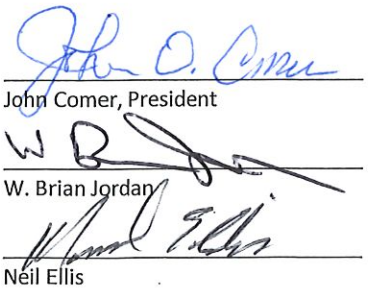 John O. Comer
John Comer, President
W B
W. Brian Jordan
Ellis
Neil Ellis